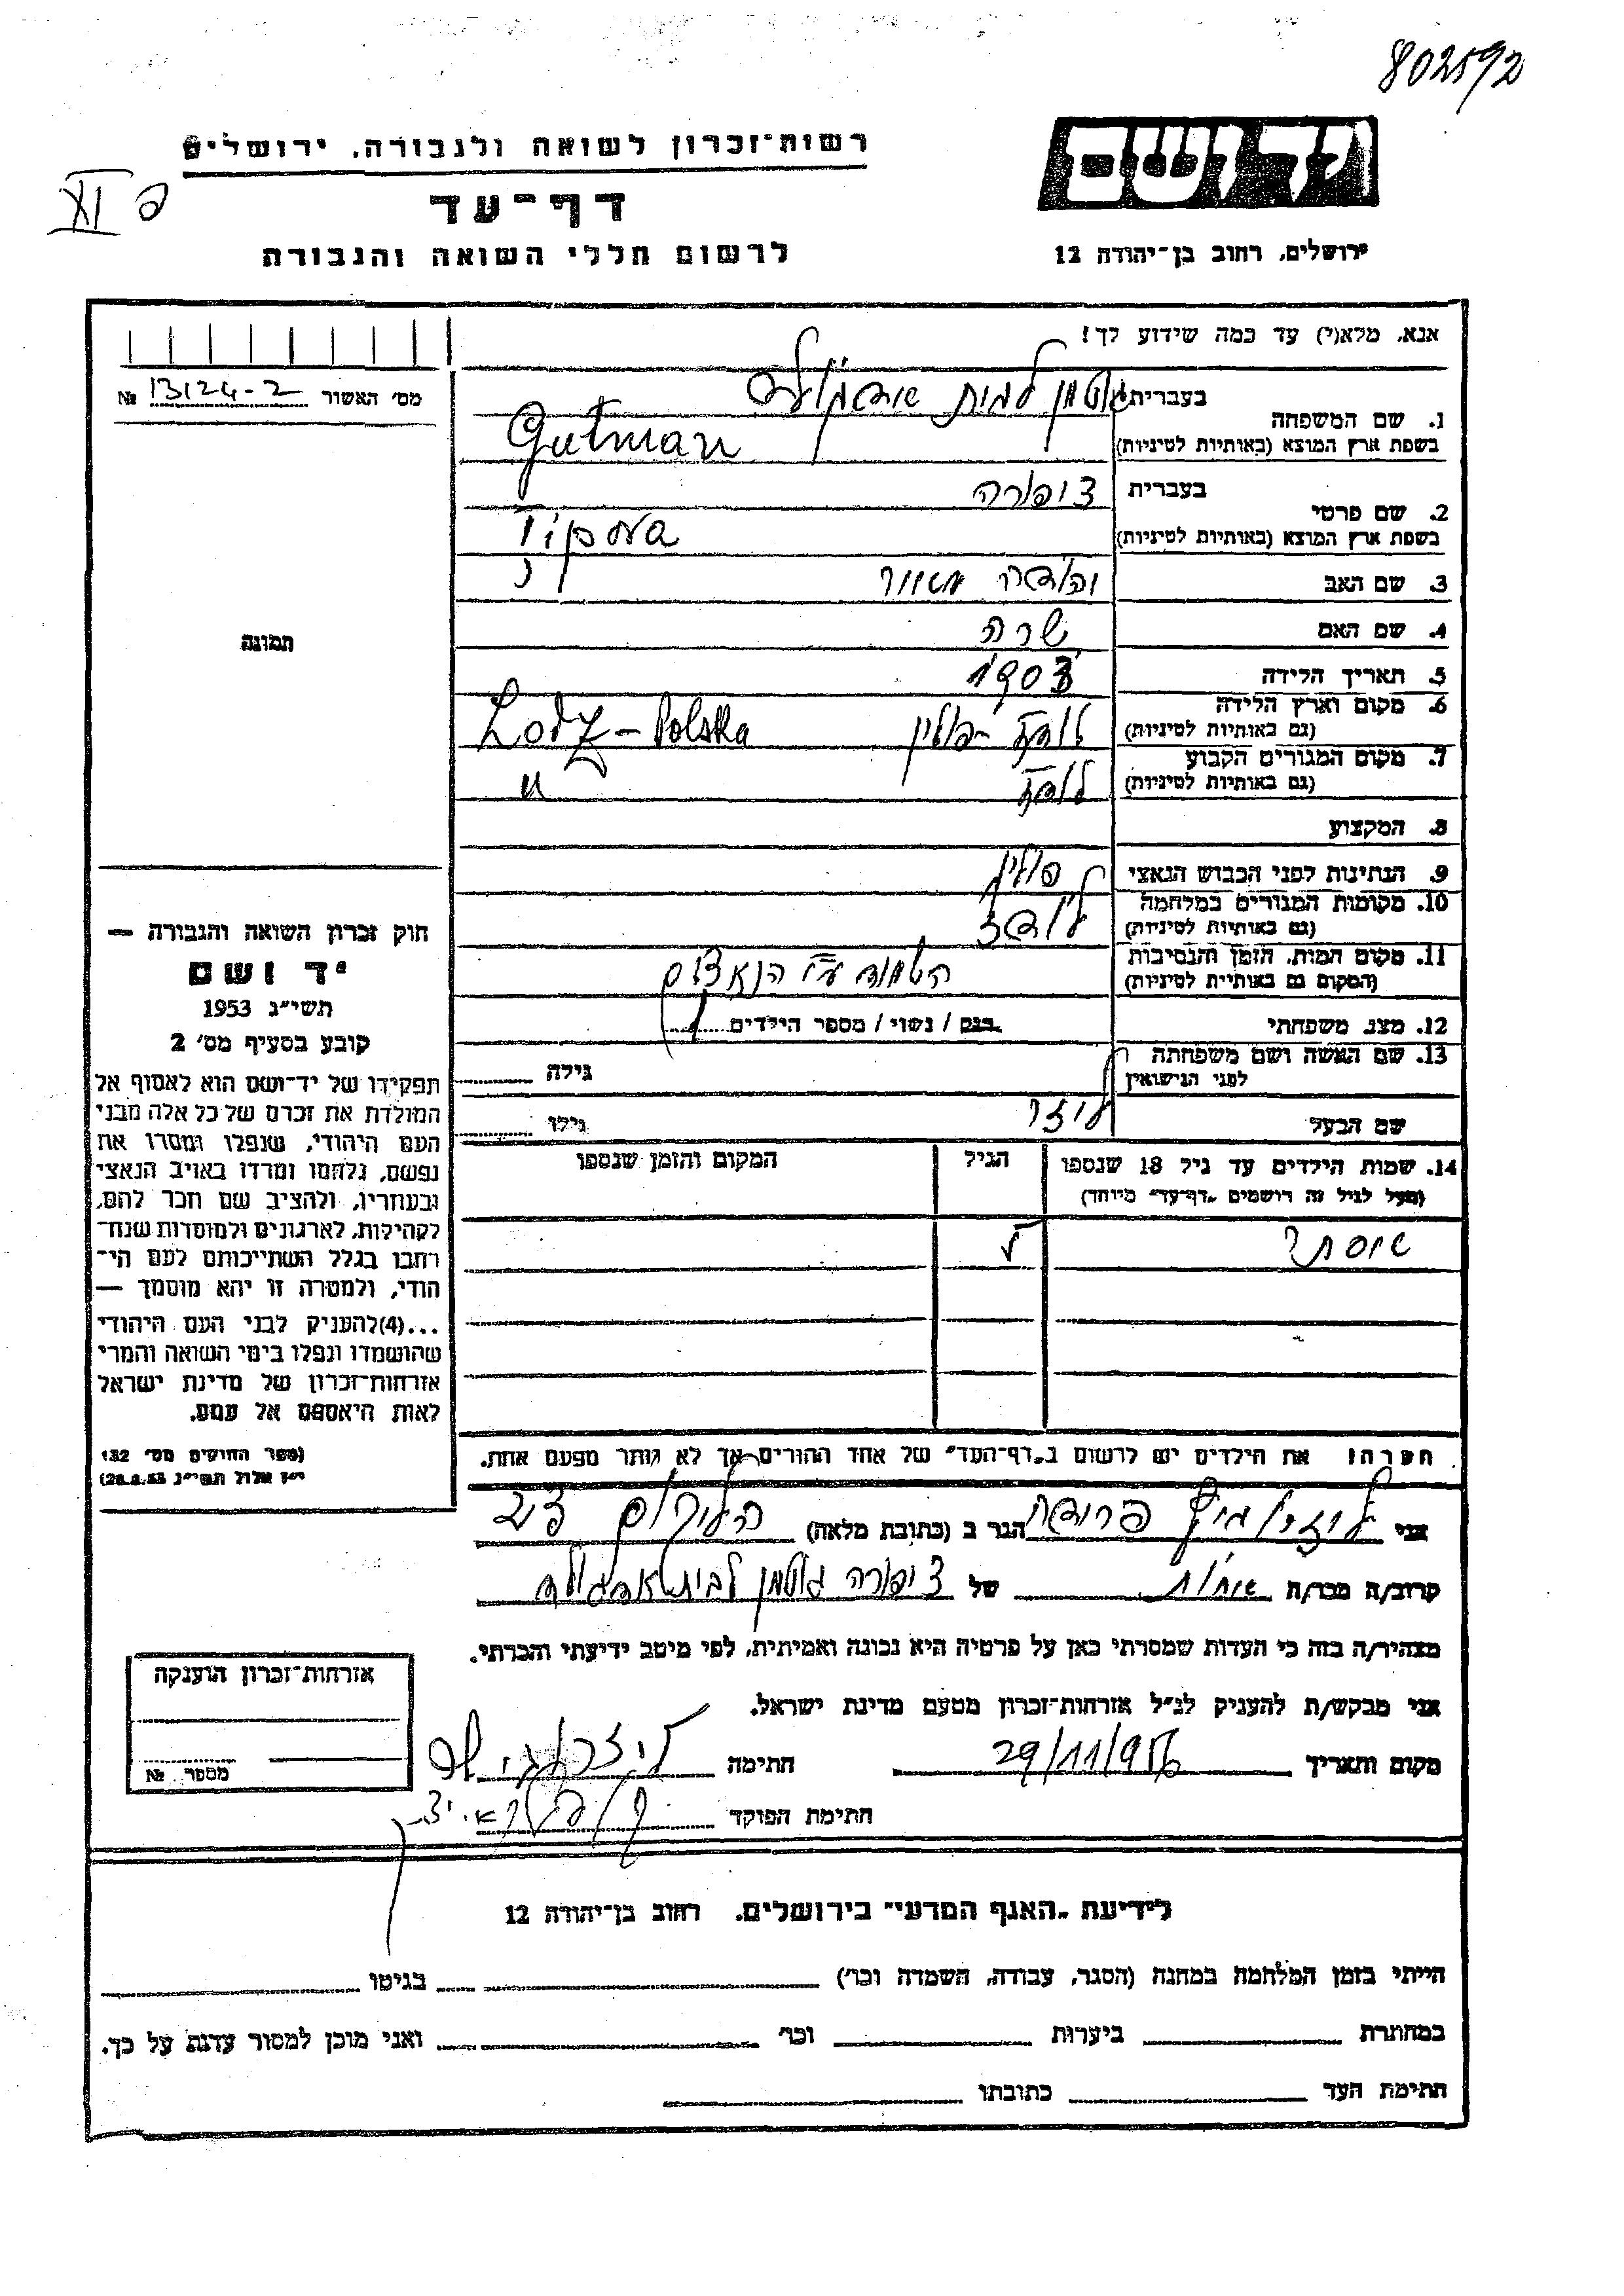 802592
יד ושם
רשות־זכרון לשואה ולגבורה, ירושלים
דף־עד
לרשום חללי השואה והגבורה
ירושלים, רחוב בן־יהודה 12
אנא, מלא(י) עד כמה שידוע לך!
מס׳ האשור 13124-2 №
1. שם המשפחה
בעברית גוטמן לבית
בשפת ארץ המוצא (באותיות לטיניות) Gutman
2. שם פרטי
בעברית צופורה
בשפת ארץ המוצא (באותיות לטיניות)
3. שם האב
4. שם האם שרה
5. תאריך הלידה 1903
6. מקום וארץ הלידה לודז - פולין Lodz - Polska
(גם באותיות לטיניות)
7. מקום המגורים הקבוע לודז "
(גם באותיות לטיניות)
8. המקצוע
9. הנתינות לפני הכבוש הנאצי פולין
10. מקומות המגורים במלחמה לודז
(גם באותיות לטיניות)
11. מקום המות, הזמן והנסיבות ע״י הנאצים
(המקום גם באותיות לטיניות)
12. מצב משפחתי רווק / נשוי / מספר הילדים 1
13. שם האשה ושם משפחתה
לפני הנישואין
גילה
שם הבעל לוזר
גילו
14. שמות הילדים עד גיל 18 שנספו
(מעל לגיל זה רושמים „דף־עד״ מיוחד)
הגיל
המקום והזמן שנספו
אסתר
הערה! את הילדים יש לרשום ב„דף־העד״ של אחד ההורים אך לא יותר מפעם אחת.
תמונה
חוק זכרון השואה והגבורה —
יד ושם
תשי״ג 1953
קובע בסעיף מס׳ 2
תפקידו של יד־ושם הוא לאסוף אל
המולדת את זכרם של כל אלה מבני
העם היהודי, שנפלו ומסרו את
נפשם, נלחמו ומרדו באויב הנאצי
ובעוזריו, ולהציב שם וזכר להם,
לקהילות, לארגונים ולמוסדות שנח־
רבו בגלל השתייכותם לעם הי־
הודי, ולמטרה זו יהא מוסמך —
...(4)להעניק לבני העם היהודי
שהושמדו ונפלו בימי השואה והמרי
אזרחות־זכרון של מדינת ישראל
לאות היאספם אל עמם.
(ספר החוקים מס׳ 132
י״ז אלול תשי״ג 28.8.53)
אני הגר ב (כתובת מלאה)
קרוב/ה מכר/ה אחות של ציפורה גוטמן לבית
מצהיר/ה בזה כי העדות שמסרתי כאן על פרטיה היא נכונה ואמיתית, לפי מיטב ידיעתי והכרתי.
אני מבקש/ת להעניק לנ״ל אזרחות־זכרון מטעם מדינת ישראל.
מקום ותאריך 29/11/956 חתימה
חתימת הפוקד
אזרחות־זכרון הוענקה
מספר №
לידיעת „האגף המדעי״ בירושלים, רחוב בן־יהודה 12
הייתי בזמן המלחמה במחנה (הסגר, עבודה, השמדה וכו׳) בגיטו
במחתרת ביערות וכו׳ ואני מוכן למסור עדות על כך.
חתימת העד כתובתו